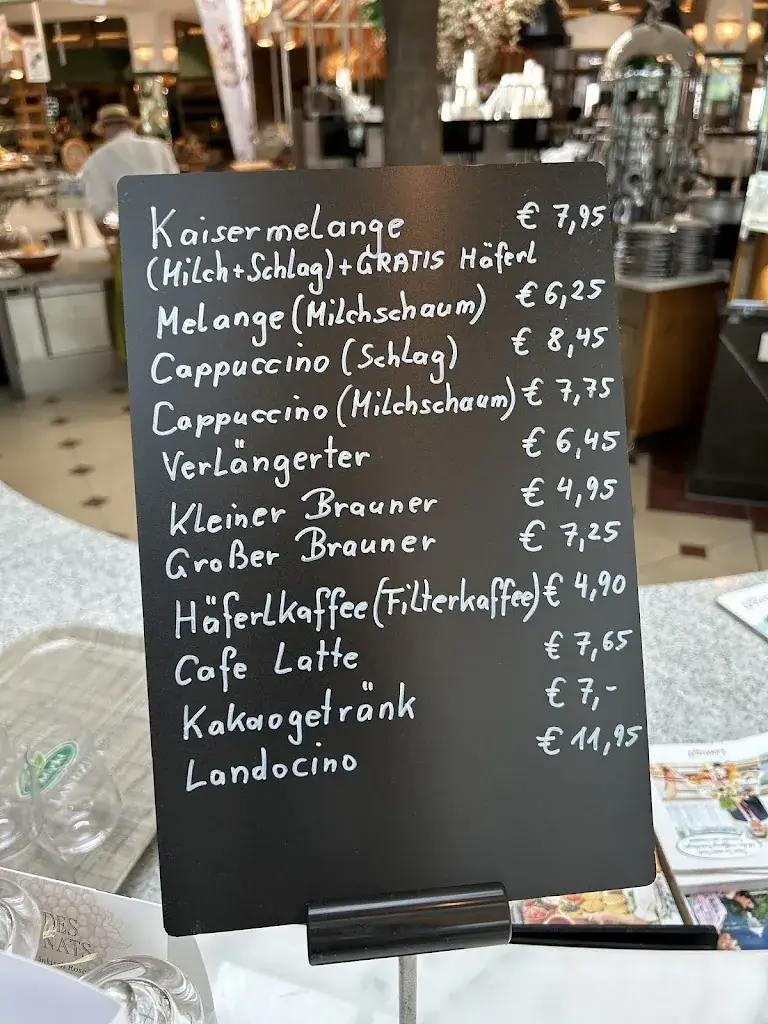 Kaisermelange € 7,95
(Milch+Schlag)+GRATIS Häferl
Melange (Milchschaum) € 6,25
Cappuccino (Schlag) € 8,45
Cappuccino (Milchschaum) € 7,75
Verlängerter € 6,45
Kleiner Brauner € 4,95
Großer Brauner € 7,25
Häferlkaffee (Filterkaffee) € 4,90
Cafe Latte € 7,65
Kakaogetränk € 7,-
Landocino € 11,95
DES
NATS